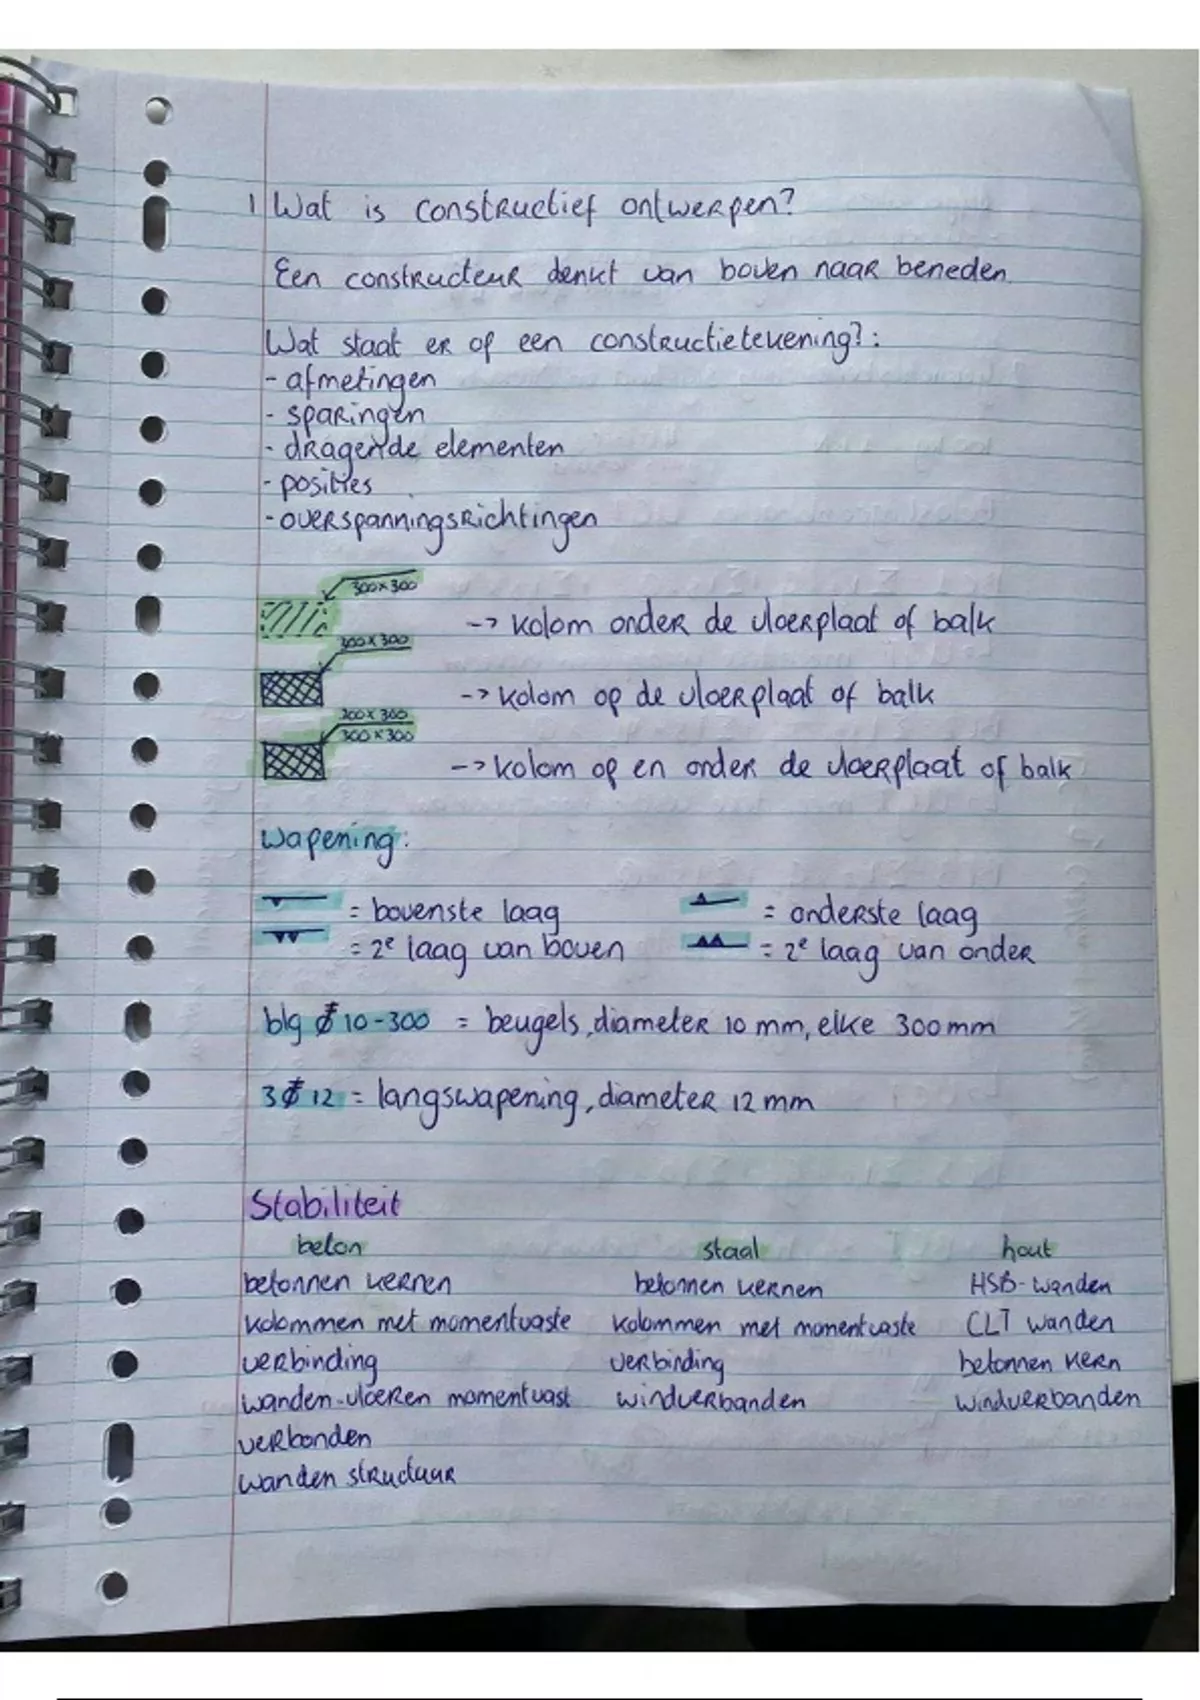 1 Wat is constructief ontwerpen?
Een constructeur denkt van boven naar beneden.
Wat staat er op een constructietekening?:
- afmetingen
- sparingen
- dragende elementen
- posities
- overspanningsrichtingen
300x300
-> kolom onder de vloerplaat of balk
300x300
-> kolom op de vloerplaat of balk
300x300
300x300
-> kolom op en onder de vloerplaat of balk
wapening:
= bovenste laag = onderste laag
= 2e laag van boven = 2e laag van onder
blg ∅ 10-300 = beugels, diameter 10 mm, elke 300 mm
3∅12 = langswapening, diameter 12 mm
Stabiliteit
beton staal hout
betonnen kernen betonnen kernen HSB-wanden
kolommen met momentvaste kolommen met momentvaste CLT wanden
verbinding verbinding betonnen kern
wanden-vloeren momentvast windverbanden windverbanden
verbonden
wanden structuur